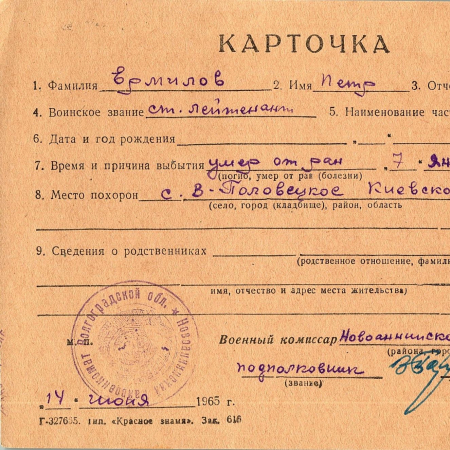 КАРТОЧКА
1. Фамилия Ермилов 2. Имя Петр 3. Отче
4. Воинское звание ст. лейтенант 5. Наименование час
6. Дата и год рождения „ “
7. Время и причина выбытия умер от ран „7“ Ян
(погиб, умер от ран (болезни)
8. Место похорон с. В-Половецкое Киевско
(село, город (кладбище), район, область
9. Сведения о родственниках
(родственное отношение, фамили
имя, отчество и адрес места жительства)
Волгоградской обл. * Новоаннинский
м.п.
Военный комиссар Новоаннинско
(района, горо
подполковник
(звание)
„14“ июня 1965 г.
Г-327635. Тип. «Красное знамя». Зак. 616